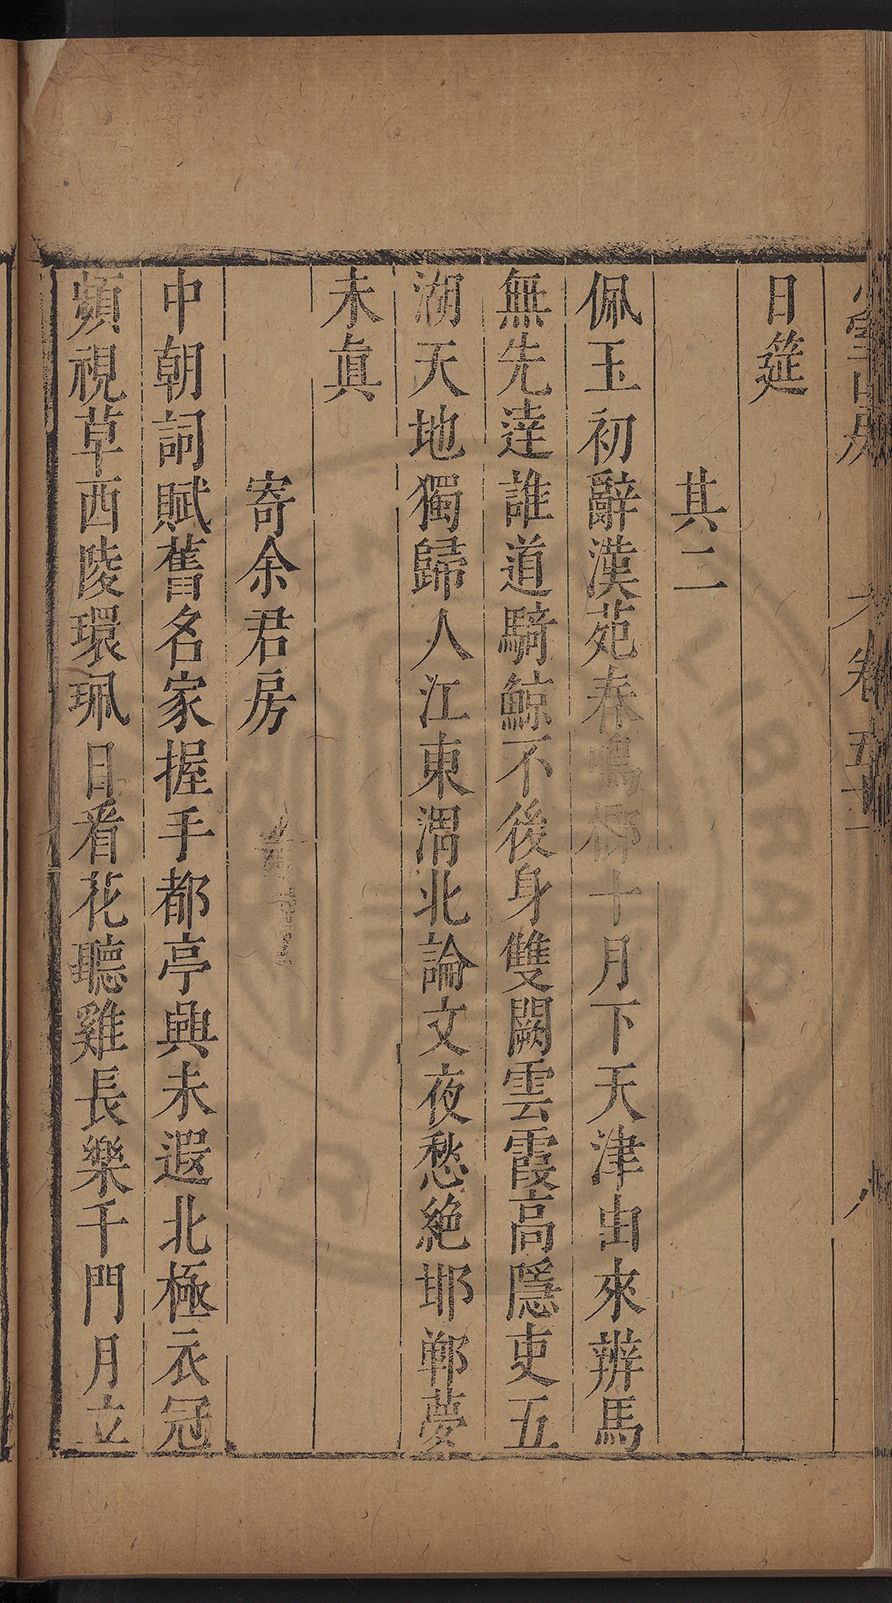 卷五十
八
日筵
其二
佩玉初辭漢苑春鳴榔十月下天津由來辨馬
無先達誰道騎鯨不後身雙闕雲霞高隱吏五
湖天地獨歸人江東渭北論文夜愁絶邯鄲夢
未眞
寄余君房
中朝詞賦舊名家握手都亭興未遐北極衣冠
頻視草西陵環珮日看花聽雞長樂千門月立